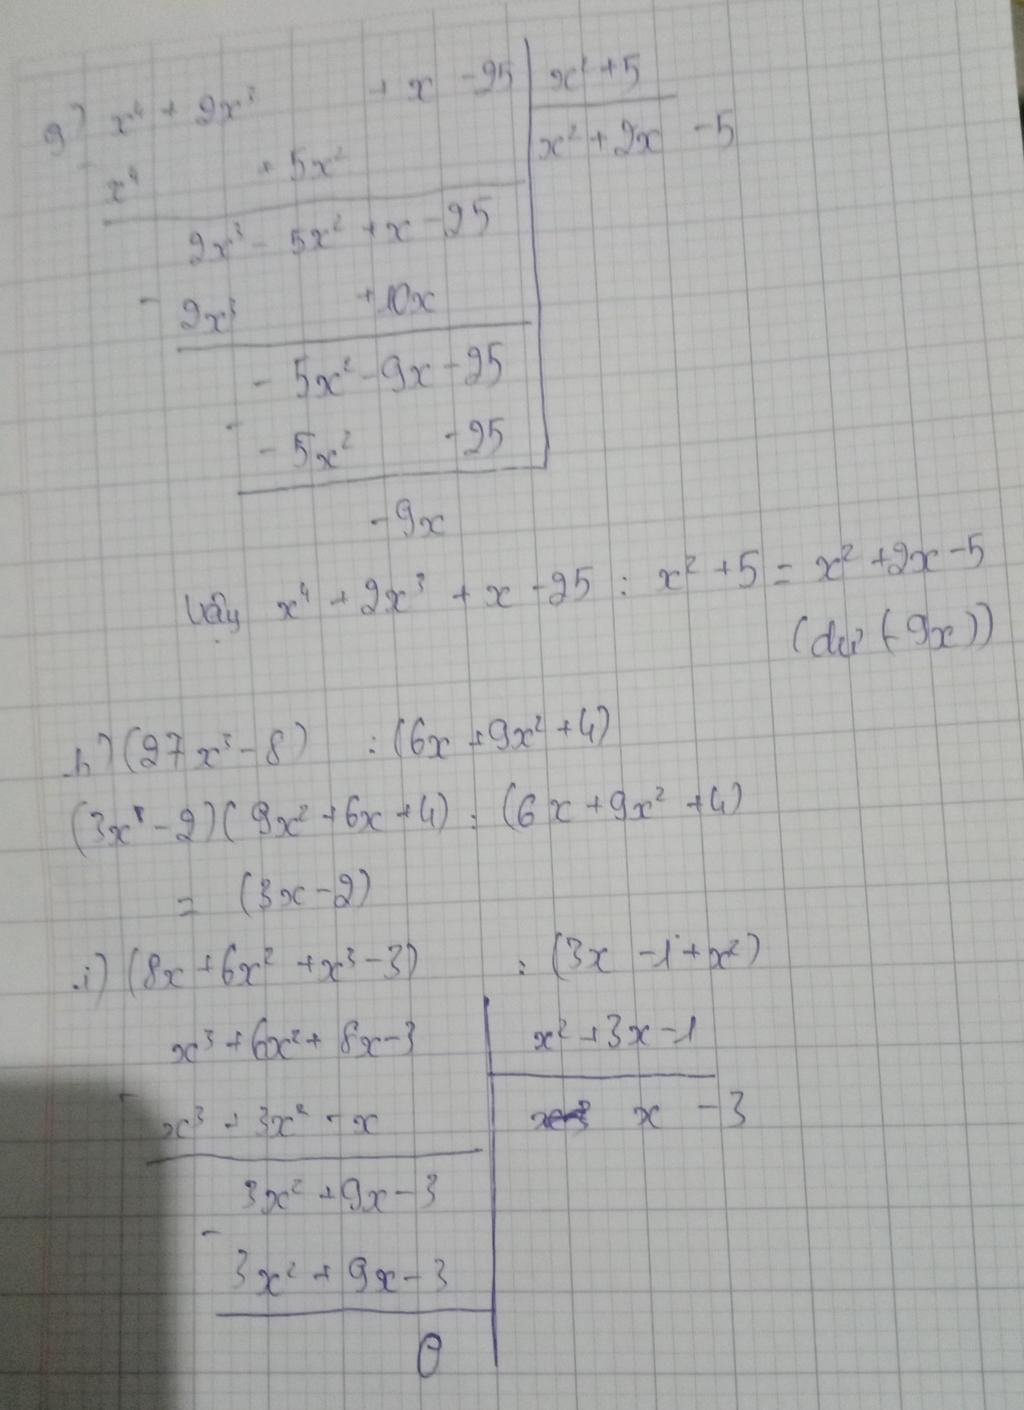 g) x⁴ + 2x³ + x - 25 | x² + 5
- x⁴ + 5x² | x² + 2x - 5
2x³ - 5x² + x - 25
- 2x³ + 10x
- 5x² - 9x - 25
- - 5x² - 25
- 9x
Vậy x⁴ + 2x³ + x - 25 : x² + 5 = x² + 2x - 5
(dư (-9x))
h) (27x³ - 8) : (6x + 9x² + 4)
(3x - 2)(9x² + 6x + 4) : (6x + 9x² + 4)
= (3x - 2)
i) (8x + 6x² + x³ - 3) : (3x - 1 + x²)
x³ + 6x² + 8x - 3 | x² + 3x - 1
- x³ + 3x² - x | x - 3
3x² + 9x - 3
- 3x² + 9x - 3
0